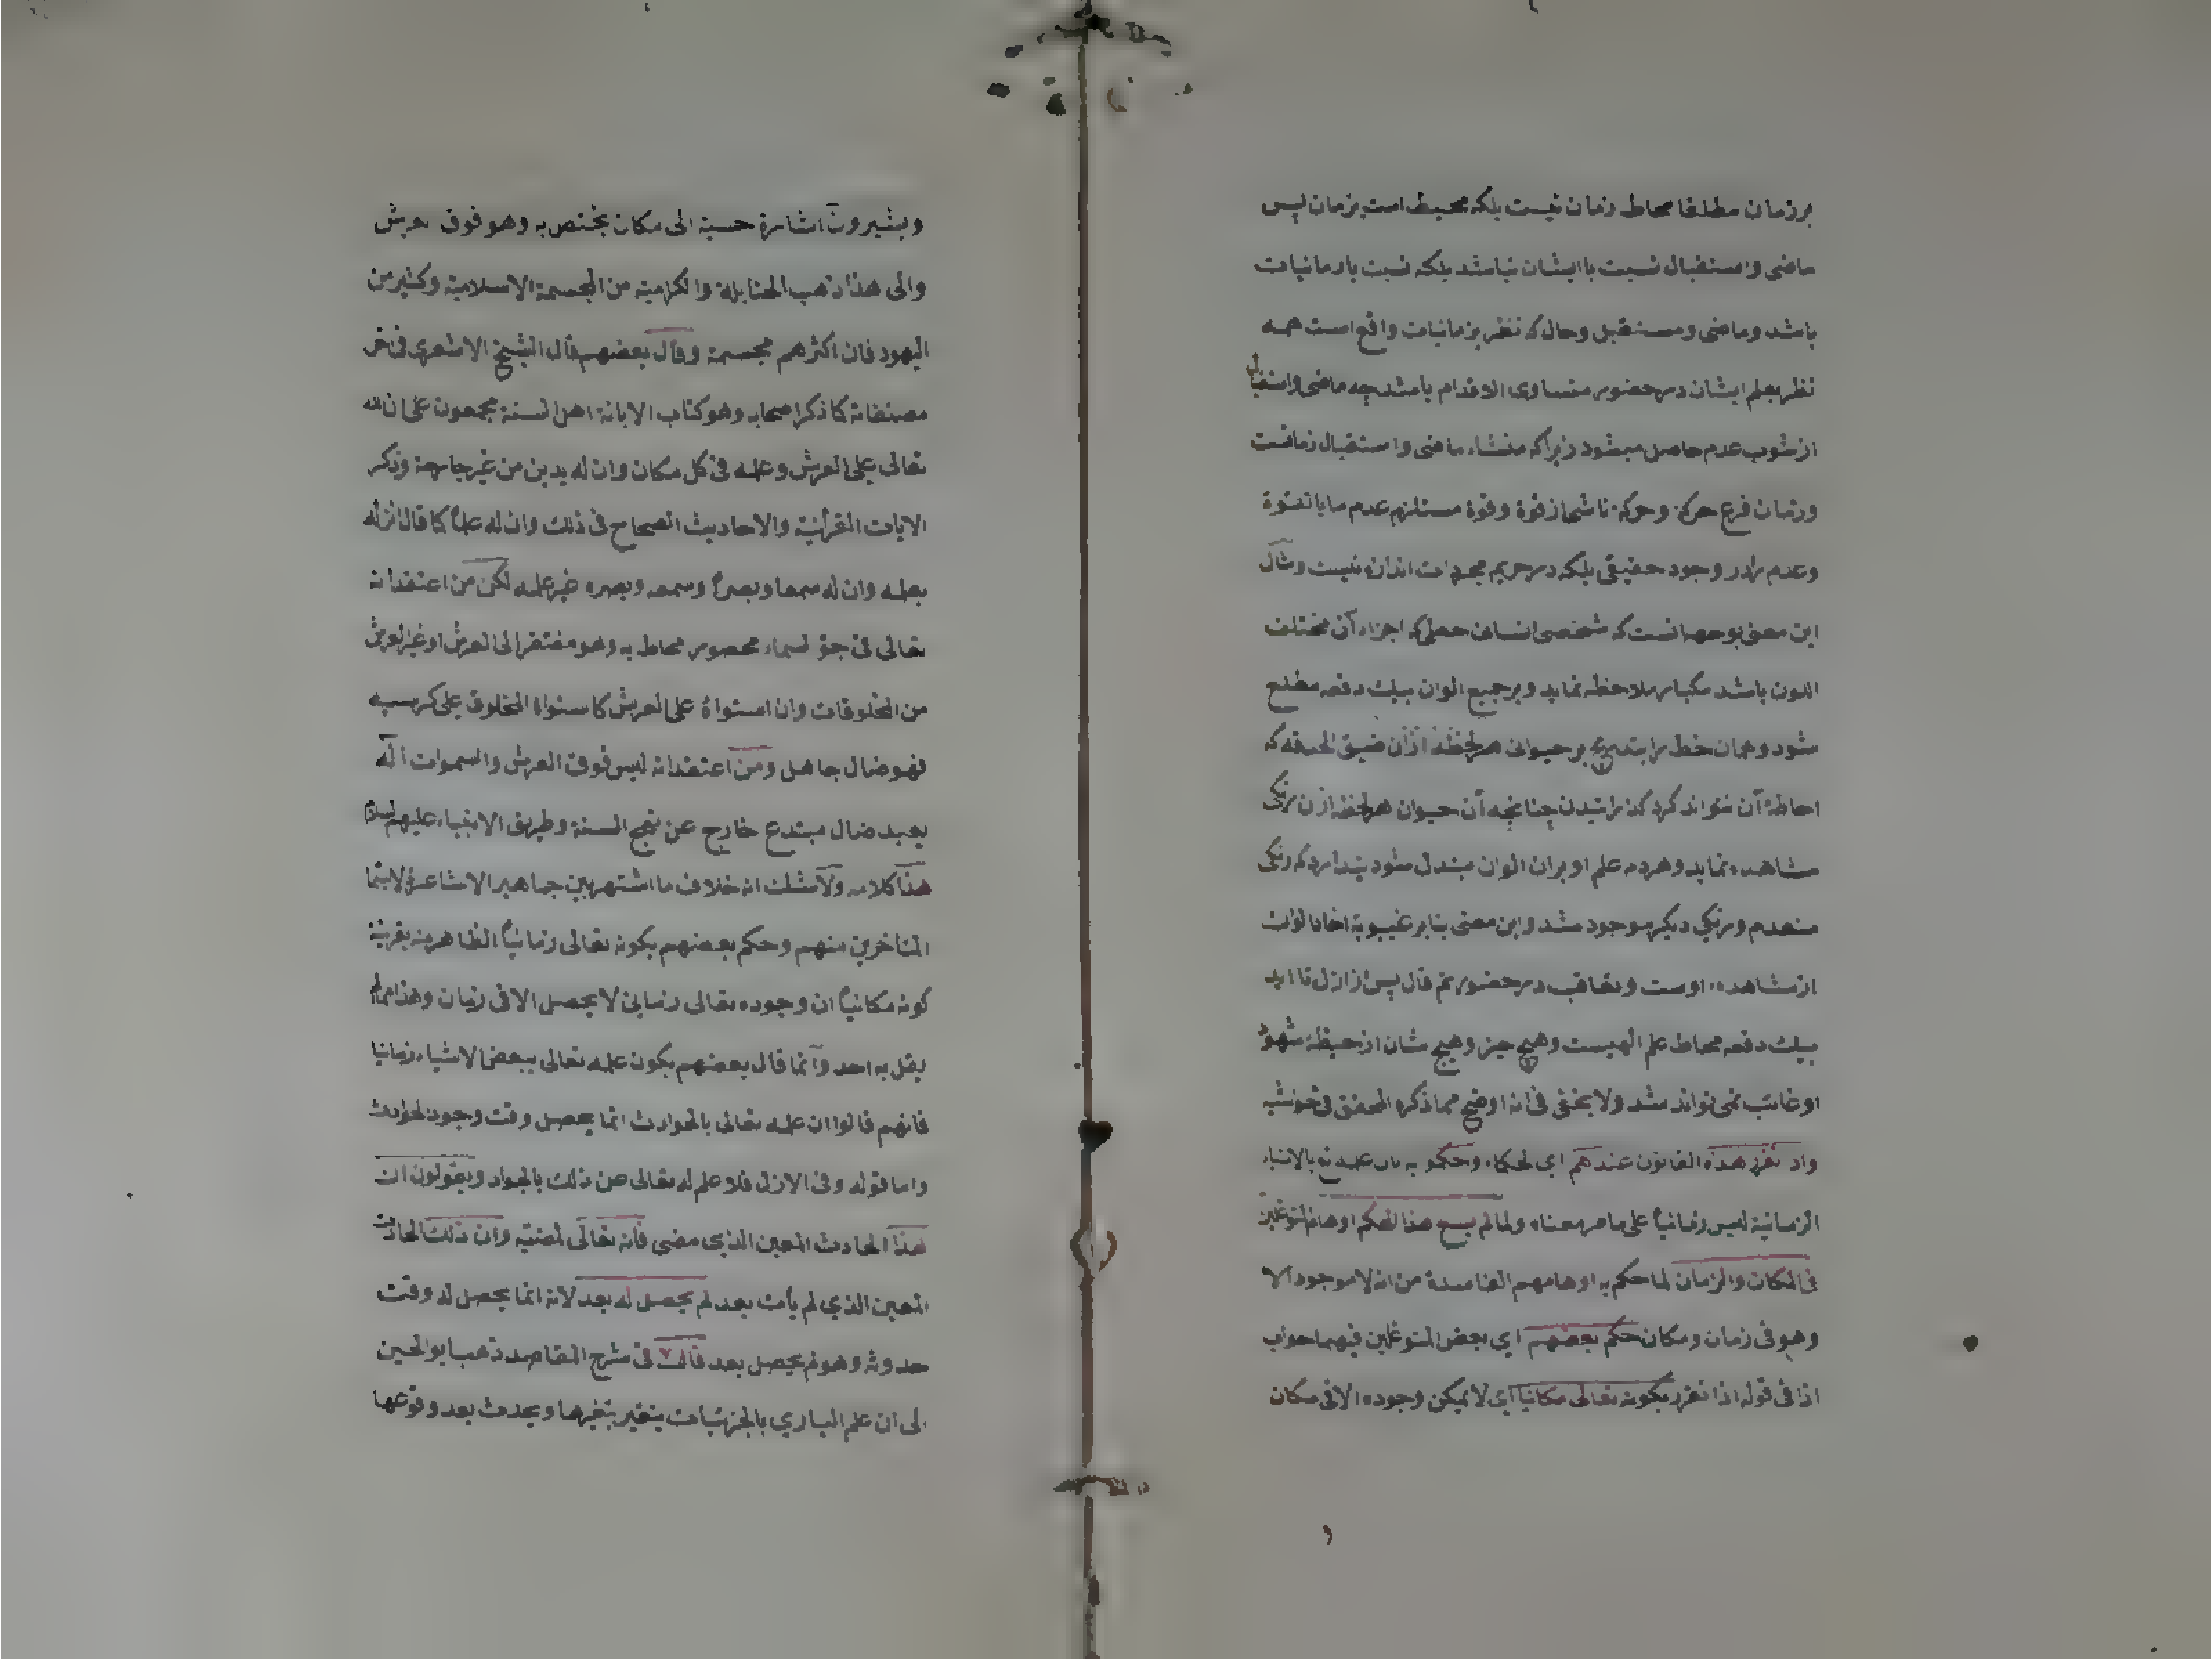 بر زمان مطلقا محاط زمان نیست بلکه محیط است بزمان پس
ماضی و استقبال نسبت باایشان نباشد بلکه نسبت بازمانیات
باشد و ماضی ومستقبل وحال که نظر بزمانیات واقع است همه
نظر بعلم ایشان در حضور متساوی الاقدام باشد چه ماضی واستقبال
از شوب عدم حاصل میشود زیرا که منشاء ماضی و استقبال زمانست
وزمان فرع حرکة وحرکة ناشی از قوة وقوة مستلزم عدم ما بالقوة
وعدم را در وجود حقیقی بلکه در حریم مجردات اندازه نیست ومثال
این معنی بوجهی انست که شخصی انسان خطی که اجزاء آن مختلف
اللون باشد یکبار ملاحظه نماید وبر جمیع الوان بیک دفعه مطلع
شود وهمان خط را بتدریج بر حیوانی هر لحظه از آن ضیق الحدقه که
احاطهٔ آن نتواند کرد گذرانیدن چنانچه آن حیوان هر لحظه ازن رنکی
مشاهده نماید وهردم علم او بران الوان مبتدل شود پندارد که رنکی
منعدم ورنکی دیکر موجود شد واین معنی بنابر غیبوبة الوان
از مشاهده اوست وتعاقب در حضور ثم قال پس از ازل تا ابد
بیک دفعه محاط علم الهیست وهیچ چیز وهیچ شان از حیطهٔ شهود
او غائب نمی تواند شد ولا یخفی فی انه اوضح مما ذکره المحقق فی
واذ تقرر هذه القانون عندهم ای الحکماء وحکمو به بان علمه تع بالاشیاء
الزمانیة لیس زمانیاً علی ما مر معناه ولما لم یسع هذا الحکم اوهام المتوغلین
فی المکان والزمان لما حکم به اوهامهم الفاسدة من انه لا موجود الا
وهو فی زمان ومکان حکم بعضهم ای بعض المتوغلین فیهما جواب
اذا فی قوله اذا تقرر بکونه تعالی مکانیا ای لا یمکن وجوده الا فی مکان
ویشیرون اشارة حسیة الی مکان یختص به وهو فوق العرش
والی هذا ذهب الحنابلة والکرامیة من المجسمة الاسلامیة وکثیر من
الیهود فان اکثرهم مجسمة وقال بعضهم قال الشیخ الاشعری فی آخر
مصنفاته کما ذکر اصحابه وهو کتاب الابانة اهل السنة مجمعون علی ان الله
تعالی علی العرش وعلمه فی کل مکان وان له یدین من غیر جارحة وذکر
الایات القرآنیة والاحادیث الصحاح فی ذلک وان له علماً کما قال انزله
بعلمه وان له سمعا وبصراً وسمعه وبصره غیر علمه لکن من اعتقد انه
تعالی فی جو السماء محصور محاط به وهو مفتقر الی العرش او غیر العرش
من المخلوقات وان استواءه علی العرش کاستواء المخلوق علی کرسیه
فهو ضال جاهل ومن اعتقد انه لیس فوق العرش والسموات اله
یعبد ضال مبتدع خارج عن نهج السنة وطریق الانبیاء علیهم السلام
هذا کلامه ولا شک انه خلاف ما اشتهر بین جماهیر الاشاعرة لا سیما
المتاخرین منهم وحکم بعضهم بکونه تعالی زمانیاً الظاهر منه بقرینة
کونه مکانیاً ان وجوده تعالی زمانی لا یحصل الا فی زمان وهذا مما لم
یقل به احد وانما قال بعضهم بکون علمه تعالی ببعض الاشیاء زمانیا
فانهم قالوا ان علمه تعالی بالحوادث انما یحصل وقت وجود الحوادث
واما قوله وفی الازل فلا علم له تعالی عن ذلک بالجواد ویقولون ان
هذا الحادث المعین الذی مضی فانه تعالی وان ذلک الحادث
المعین الذی لم یأت بعد لم یحصل له بعد لانه انما یحصل له وقت
حدوثه وهو لم یحصل بعد قال فی شرح المقاصد ذهب ابو الحسین
الی ان علم الباری بالجزئیات یتغیر بتغیرها ویحدث بعد وقوعها